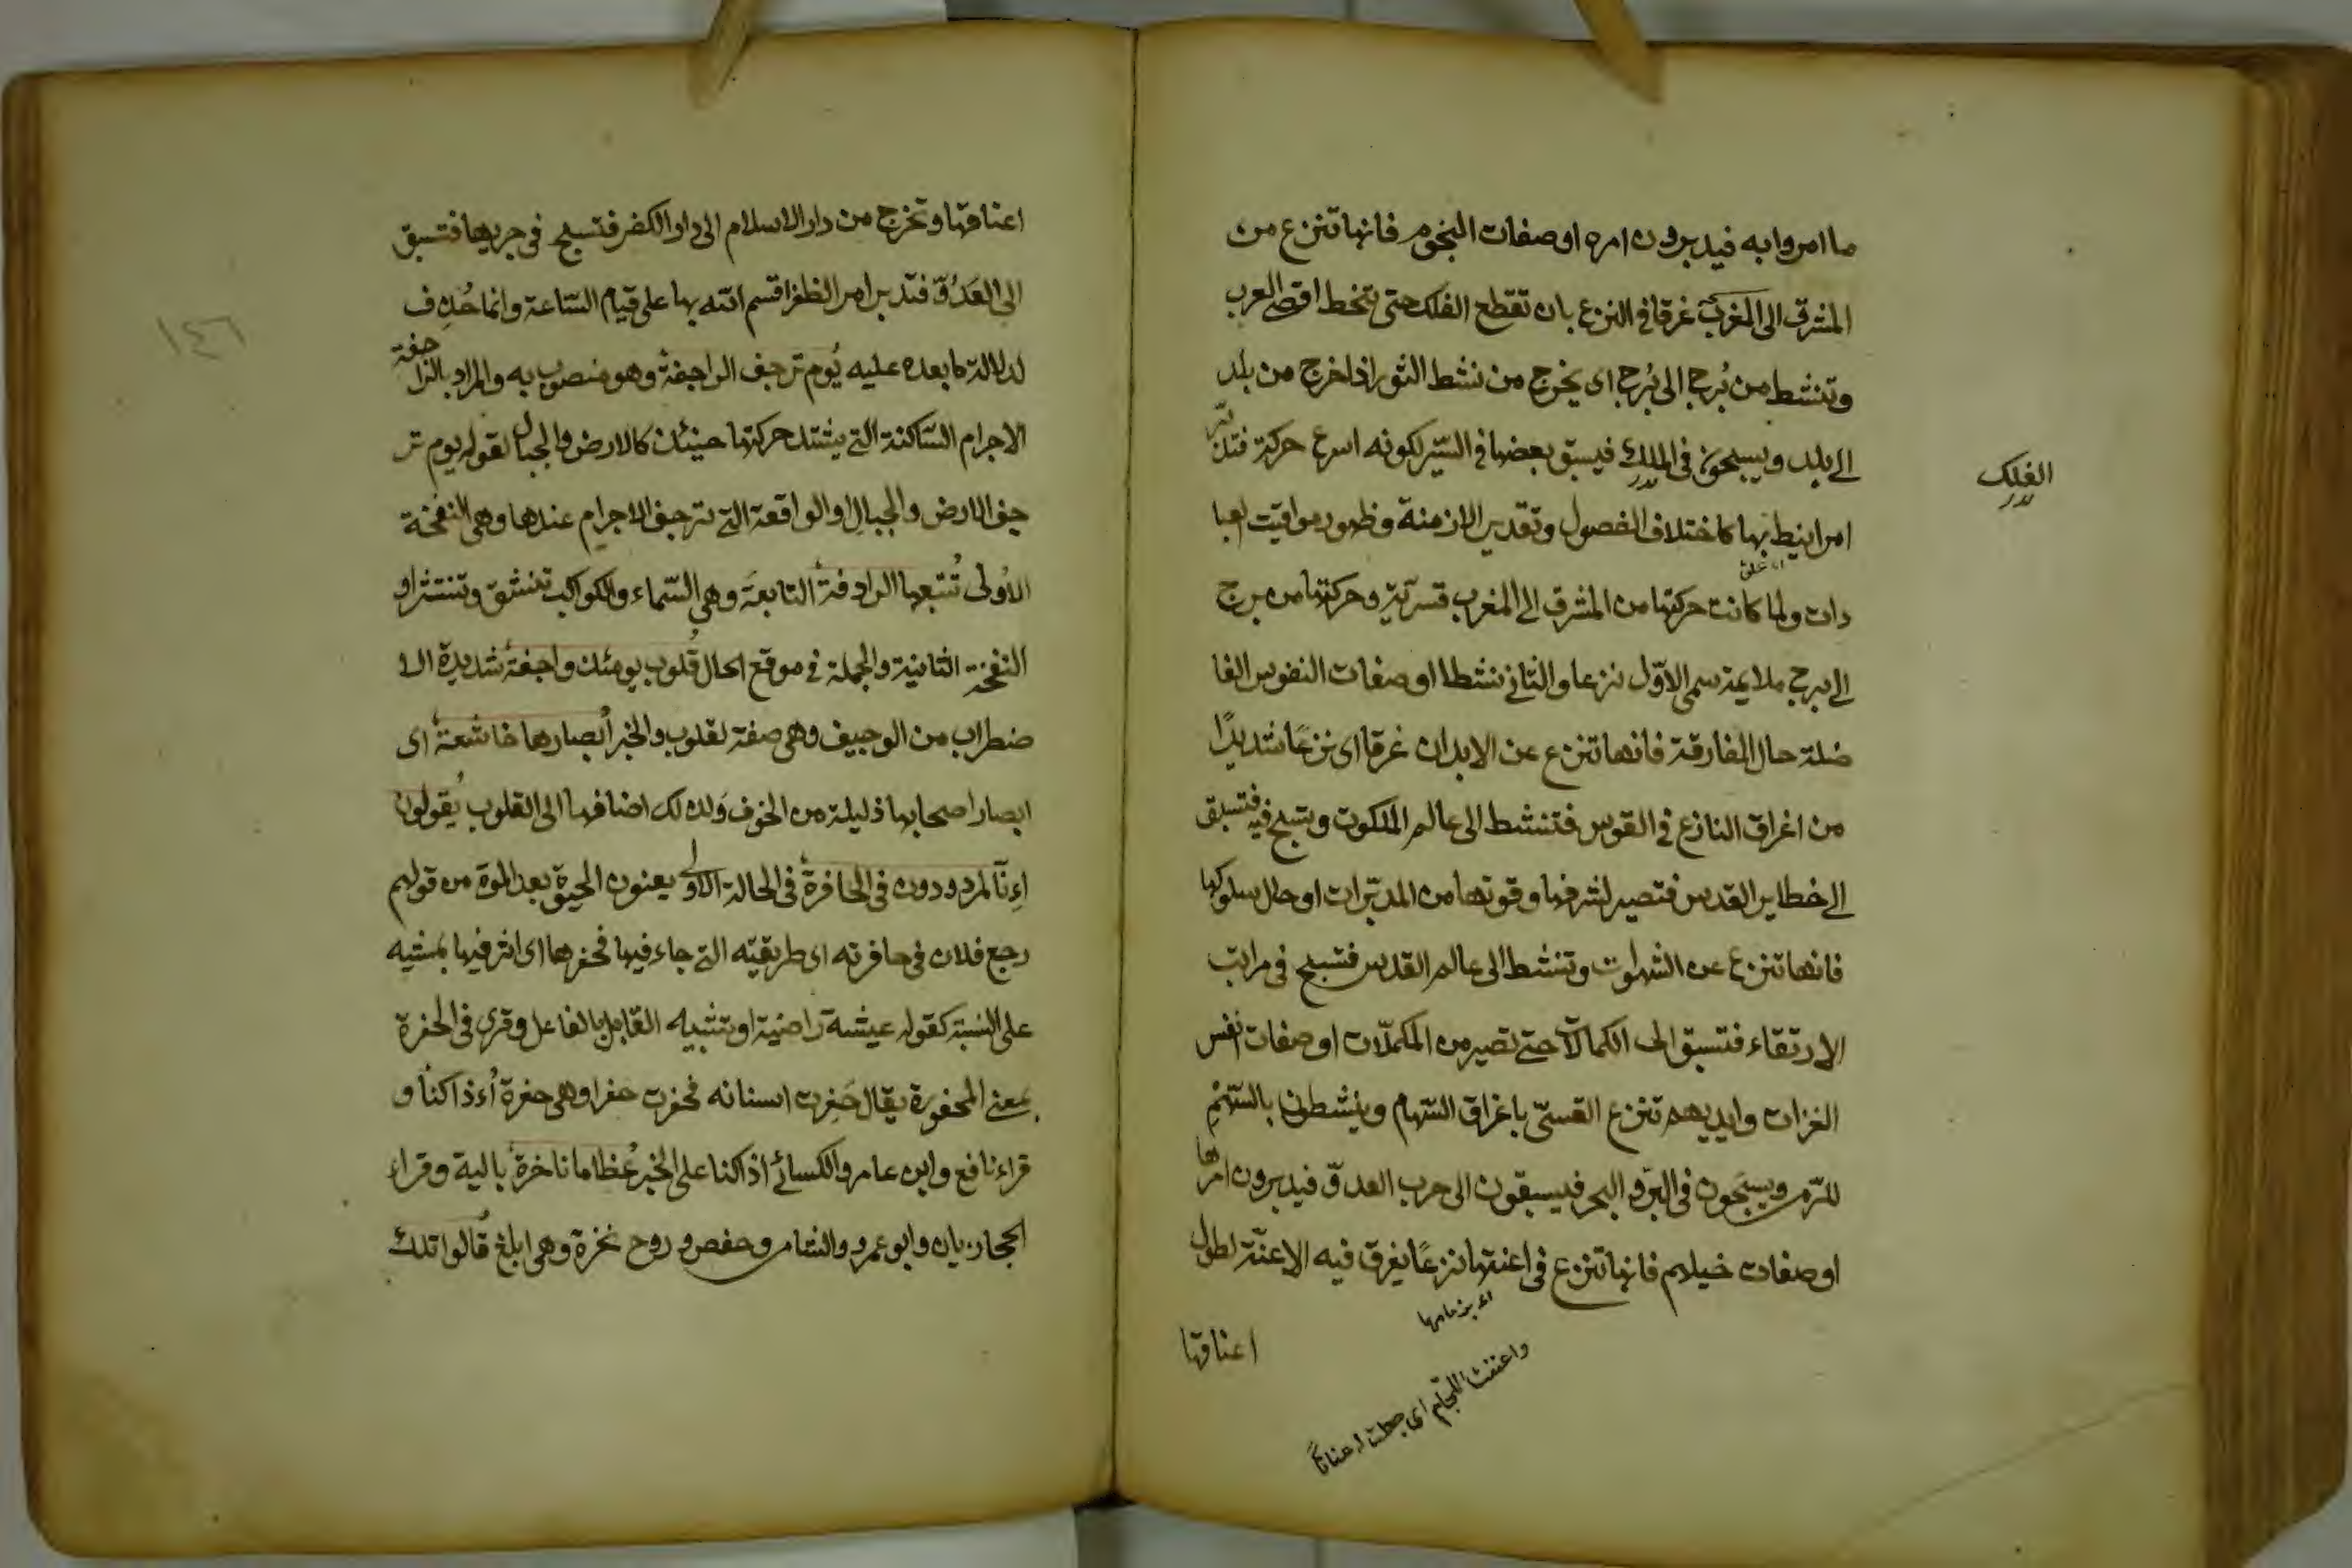 ما امروا به فيدبرون امره او صفات النجوم فانها تنزع من
المشرق الى المغرب غرقا في النزع بان تقطع الفلك حتى تنحط اقصى العرب
وتنشط من بُرج الى بُرج اى يخرج من نشط الثور اذا خرج من بلد
الى بلد ويسبحون فى الملك فيسبق بعضها فى السّير لكونه اسرع حركة فتدبّر
الفلك
امرا نيط بها كاختلاف الفصول وتقدير الازمنة وظهور مواقيت العبا
اى علق
دات ولما كانت حركتها من المشرق الى المغرب قسريّة وحركتها من برج
الى برج ملايمة سمى الاوّل نزعا والثانى نشطا او صفات النفوس الفا
ضلة حال المفارقة فانها تنزع عن الابدان غرقا اى نزعًا شديدًا
من اغراق النازع فى القوس فتنشط الى عالم الملكوت وتسبح فيه فتسبق
الى خطاير القدس فتصير لشرفها وقوتها من المدبّرات او حال سلوكها
فانها تنزع عن الشهوات وتنشط الى عالم القدس فتسبح فى مراتب
الارتقاء فتسبق الى الكمالات حتى تصير من المكملّات او صفات انفس
الغزات وايديهم تنزع القسىّ باغراق السّهام وينشطون بالسّهْمِ
للرّم ويسبَحون فى البرّ و البحر فيسبقون الى حرب العدوّ فيدبرون امرها
او صفات خيلهم فانها تنزع فى اعنتها نزعًا يغرق فيه الاعنّة لطول
اى بزمامها
اعناقها
واعننت اللّجام اى جعلت له عنانًا
١٤٦
اعناقها وتخرج من دار الاسلام الى دار الكفر فتسبح فى جريها فتسبق
الى العَدُوّ فتدبر امر الظفر اقسم الله بها على قيام السّاعة وانما حُذِف
لدلالة ما بعده عليه يُوم ترجف الراجفةُ وهو منصوب به والمراد بالراجفة
الاجرام السّاكنة التى يشتد حركتها حينئذ كالارض والجبال لقوله يوم تر
جف الارض والجبالِ او الواقعة التى ترجف الاجرام عندها وهى النفخة
الاُولى تُتبعها الرادفةُ التابعَة وهى السّماء والكواكب تنشق وتنتثر او
النفخة الثانية والجملة فى موقع الحال قُلوب يومئذ واجفةُ شديدة الا
ضطراب من الوجيف وهى صفة لقلوب والخبر اُبصارها خاشعةُ اى
ابصار اصحابها ذليلة من الخوف وَلذلك اضافها الى القلوب يُقولون
اءِنّا لمردودون فى الحافرةُ فى الحالة الاولى يعنون الحيوة بعد الموة من قولهم
رجع فلان فى حافرته اى طريقيّه التى جاء فيها فحفرها اى اثر فيها بمشيه
على النسبة كقوله عيشة راضية او تشبيه القابل بالفاعل وقرى فى الحفرة
بمعنى المحفورة يقال حَفِرت اسنانه فحفرت حفرا وهى حفرة اُءذا كنّا و
قراء نافع وابن عامر والكسائى اذا كنا على الخبر عُظاما ناخرةُ بالية وقراء
الحجازيان وابو عمرو والشامى وحفص وروح نخرة وهى ابلغ قُالوا تلك